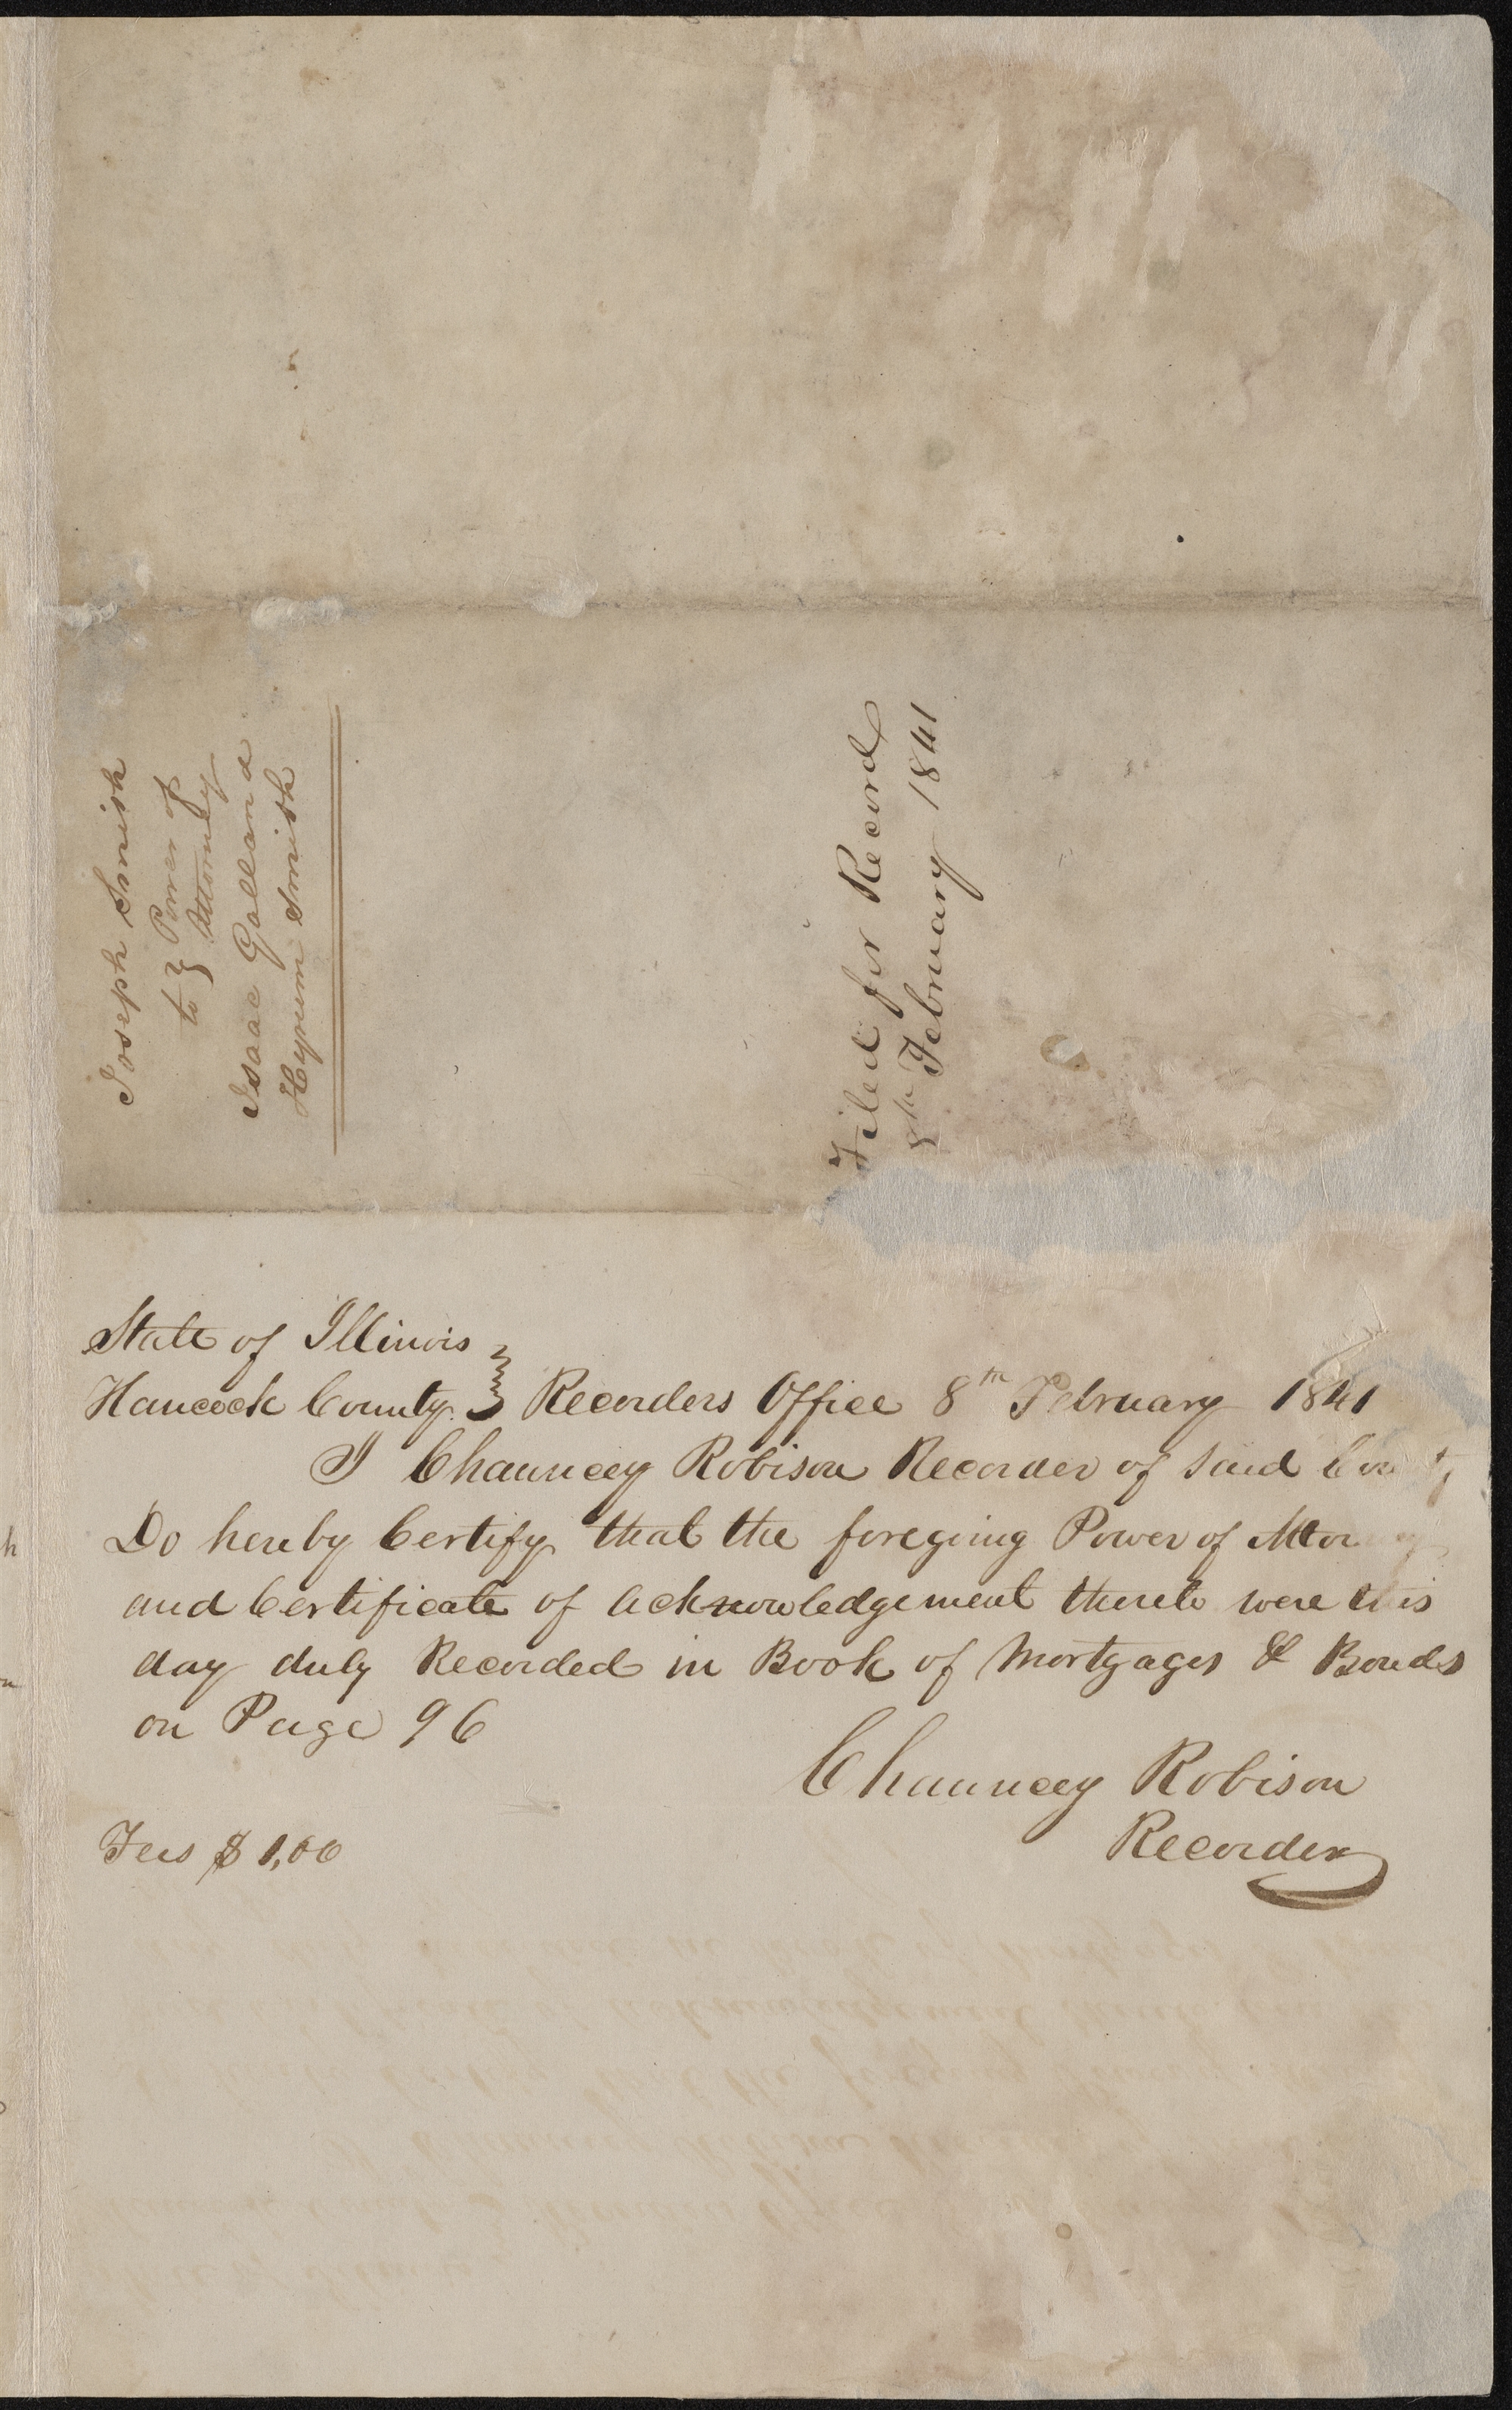 Joseph Smith
to } Power of
Attorney
Isaac Galland
Hyrum Smith
Filed for Record
8th February 1841
State of Illinois
Hancock County } Recorders Office 8th February 1841
I Chauncey Robison Recorder of said County
Do hereby Certify that the foregoing Power of Attorney
and Certificate of acknowledgement thereto were this
day duly Recorded in Book of Mortgages & Bonds
on Page 96
Chauncey Robison
Recorder
Fees $1,00